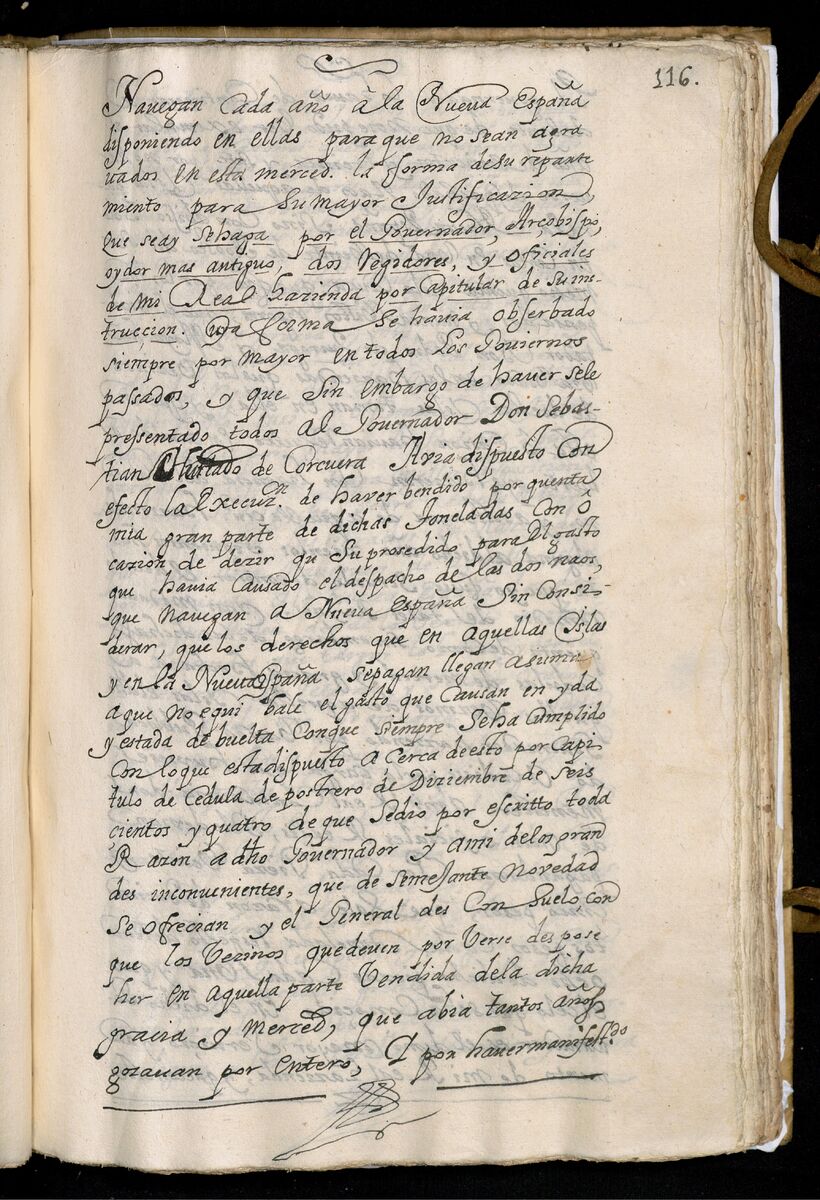 116.
Nauegan cada año â la Nueva España
disponiendo en ellas para que no sean agra
uados en esta merced. la forma de su repante
miento para su mayor Justificazion,
que sea y se haga por el Gouernador, Arçobispo,
oydor mas antiguo, dos Regidores, y oficiales
de mi Real hazienda por Capitular de su ins-
truccion. cuya forma se hauia obserbado
siempre por mayor en todos los Gouiernos
passados, y que sin embargo de hauer sele
pressentado todos al Gouernador Don Sebas-
tian Hurtado de Corcuera Avia dispuesto Con
efecto la Execuz.n de haver bendido por quenta
mia gran parte de dichas toneladas con ô
cazion de dezir qu su prosedido para el gasto
que hauia Causado el despacho de las dos naos,
que nauegan a Nueva España sin Consi-
derar, que los derechos que en aquellas Yslas
y en la Nueva España se pagan llegan a suma
a que no equi bale el gasto que Causan en yda
y estada de buelta Conque siempre se ha Cumplido
Con lo que esta dispuesto a cerca de esto por Capi
tulo de Cedula de postrero de Diziembre de seis
cientos y quatro de que se dio por escritto toda
Razon a dho Gouernador y a mi de los gran
des inconuenientes, que de semejante novedad
se ofrecian y el General des Con suelo, con
que los Vezinos quedeuen por verse despose
her en aquella parte Vendida de la dicha
gracia y merced, que abia tantos años
gozauan por entero, Y por hauer manifest.do